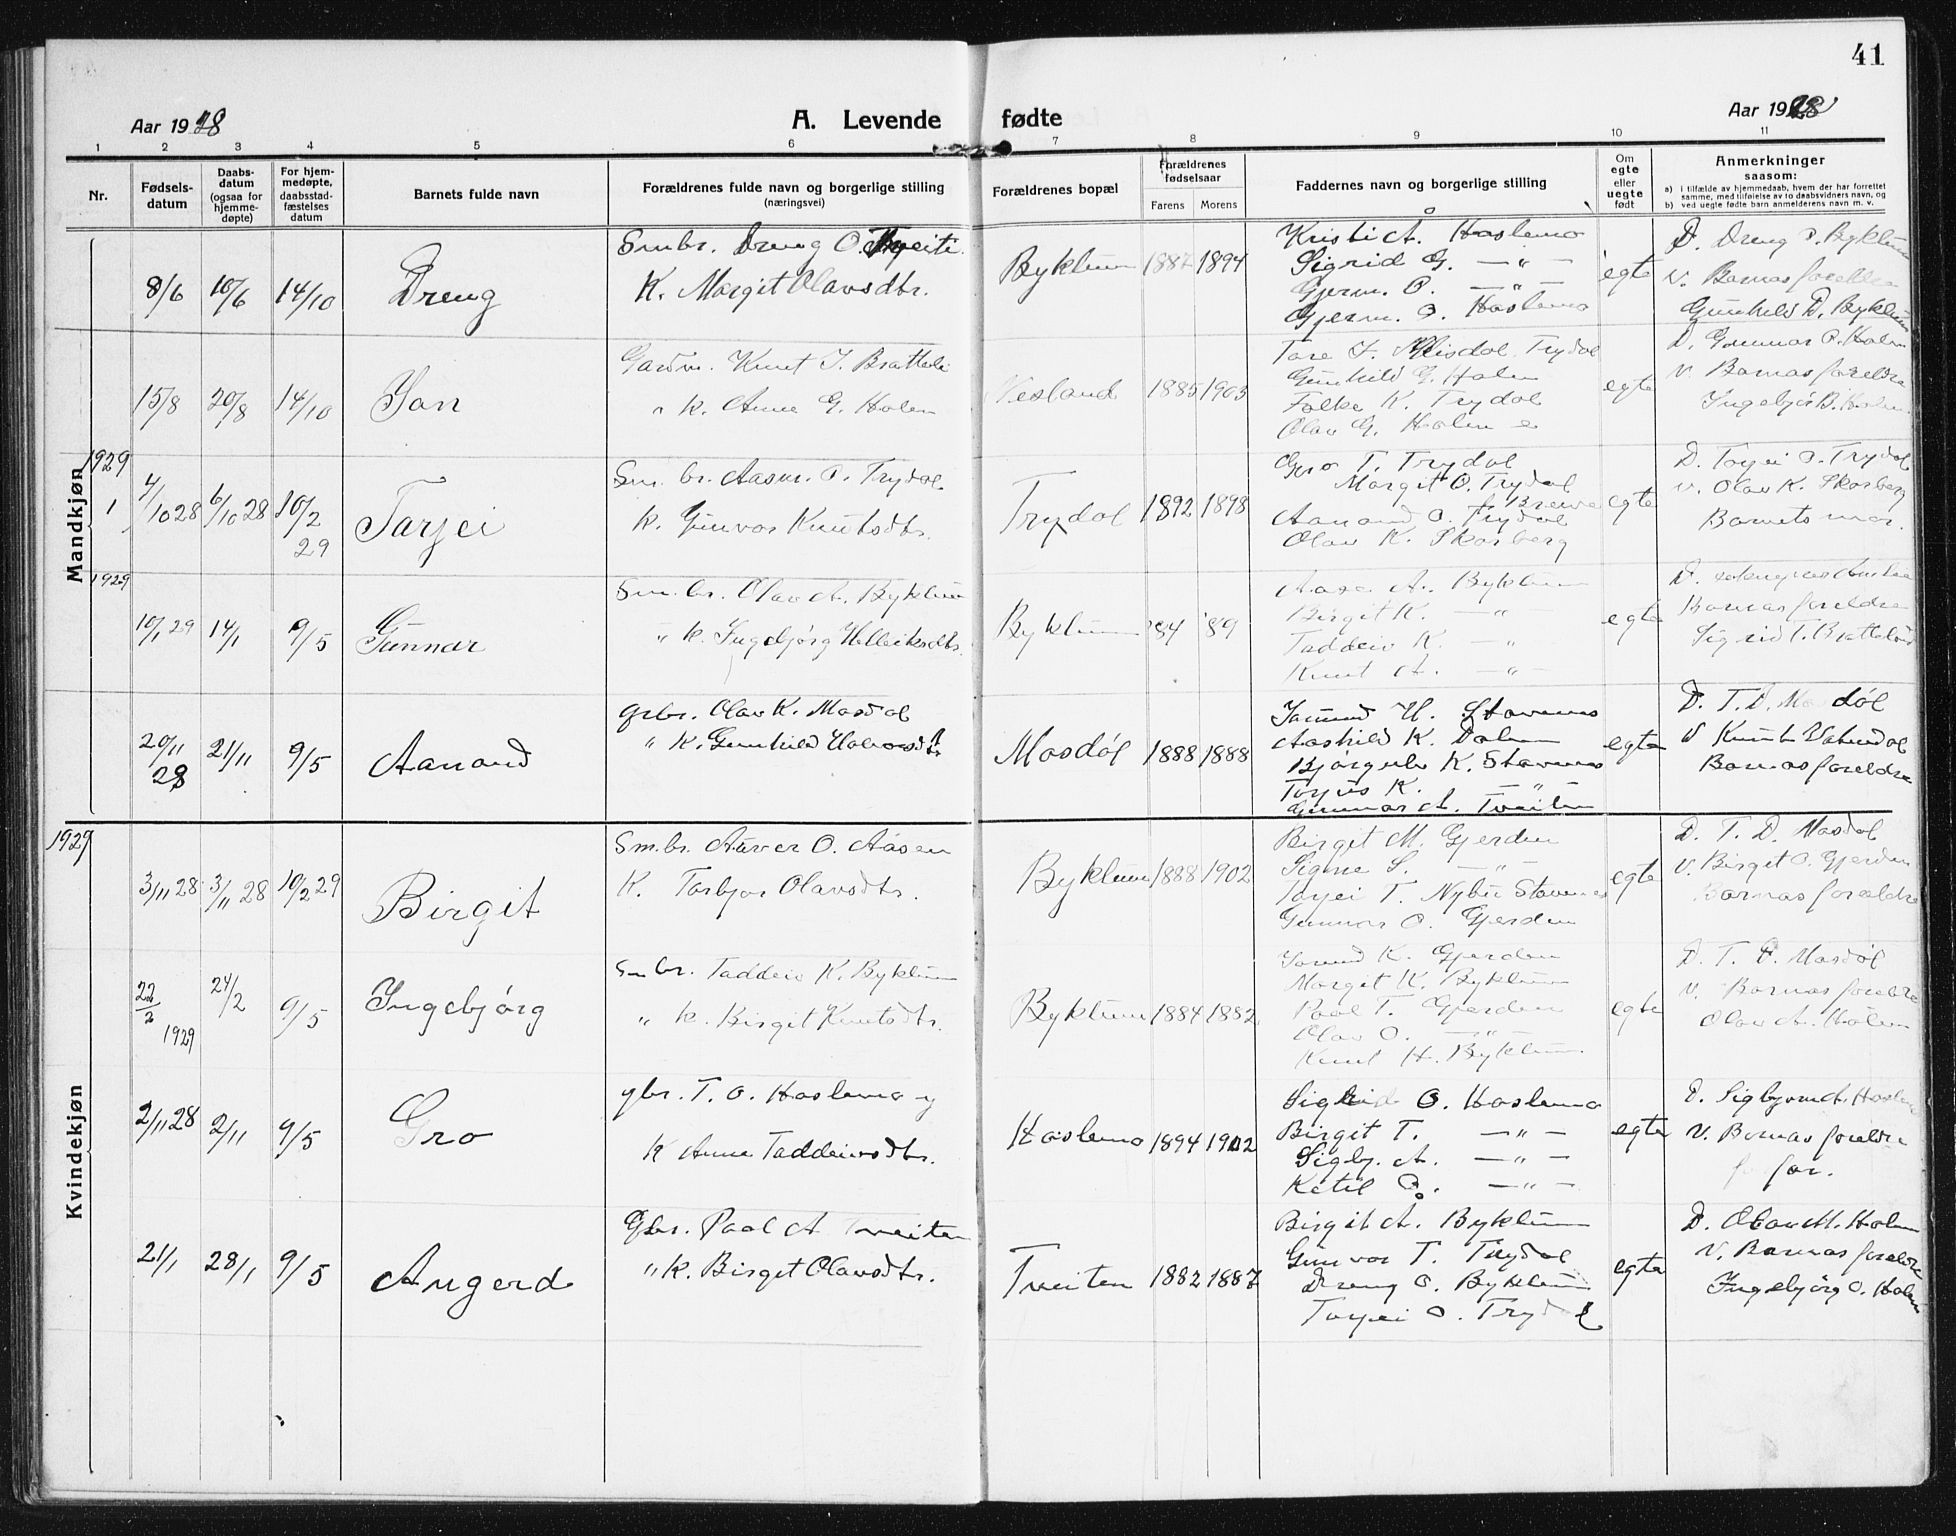 41
Aar 1928
A. Levende fødte
Aar 1928
1 2 3 4 5 6 7 8 9 10 11
Nr.
Fødsels-
datum
Daabs-
datum
(ogsaa for
hjemme-
døpte)
For hjem-
medøpte,
daabsstad-
fæstelses
datum
Barnets fulde navn
Forældrenes fulde navn og borgerlige stilling
(næringsvei)
Forældrenes bopæl
Forældrenes
fødselsaar
Farens Morens
Faddernes navn og borgerlige stilling
Om
egte
eller
uegte
født
Anmerkninger
saasom:
a) i tilfælde av hjemmedaab, hvem der har forrettet
samme, med tilføielse av to daabsvidners navn, og
b) ved uegte fødte barn anmelderens navn m. v.
Mandkjøn
8/6 10/6 14/10 Dreng
Smbr. Dreng O. Tveiti
K. Margit Olavsdtr.
Byklum 1887 1894
Kristi A. Haslemo
Sigrid G. —"—
Gjerm. O. —"—
Gjerm. O. Haslemo
egte
D. Dreng O. Byklum
V. Barnas foreldre
Gunhild D. Byklum
15/8 20/8 14/10 Jon
Gardm. Knut J. Bratteli
" K. Anne G. Holen
Vesland 1885 1903
Tore J. Trydal
Gunhild G. Holen
Folke K. Trydal
Olav G. Holen
egte
D. Gunnar O. Holen
V. Barnas foreldre
Ingebjør B. Holen
1929
1 4/10 28 6/10 28 10/2 29 Tarjei
Sm. br. Aasm. O. Trydal
K. Gunvor Knutsdtr.
Trydal 1892 1898
Gro T. Trydal
Margit O. Trydal
Breive
Aanund O. Trydal
Olav K. Skarberg
egte
D. Torjei O. Trydal
V. Olav K. Skarberg
Barnets mor.
1929
10/1 29 14/1 9/5 Gunnar
Sm. br. Olav A. Byklum
" K. Ingebjørg Helleiksdtr.
Byklum '84 '89
Aase A. Byklum
Birgit K. —"—
Taddeiv K. —"—
Knut A. —"—
egte
D.
Barnas foreldre
Sigrid T. Bratteland
20/11 28 21/11 9/5 Aanond
Grbr. Olav K. Mosdøl
" K. Gunhild Halvorsdtr
Mosdøl 1888 1888
Jorund H. Stavenes
Aashild K. Dalen
Bjørgulv K. Stavenes
Torjus K. —"—
Gunnar A. Tveiten
egte
D. T. D. Mosdøl
V Knut Vatnedal
Barnas foreldre
Kvindekjøn
1929
3/11 28 3/11 28 10/2 29 Birgit
Sm.br. Auver O. Aasen
K. Torbjør Olavsdtr.
Byklum 1888 1902
Birgit M. Gjerden
Signe S. —"—
Torjei T. Nybu Stavenes
Gunnar O. Gjerden
egte
D. T. D. Mosdøl
V. Birgit O. Gjerden
Barnas foreldre
22/2 1929 24/2 9/5 Ingebjørg
Sm br. Taddeiv K. Byklum
" K. Birgit Knutsdtr.
Byklum 1884 1882
Jorund K. Gjerden
Margit K. Byklum
Paal T. Gjerden
Olav O. —"—
Knut H. Byklum.
egte
D. T. D. Mosdøl
V. Barnas foreldre
Olav A. Holen
2/11 28 2/11 9/5 Gro
gbr. T. O. Haslemo
K Anne Taddeivsdtr.
Haslemo 1894 1902
Sigrid O. Haslemo
Birgit T. —"—
Sigbj. A. —"—
Ketil O. —"—
egte
D. Sigbjørn A. Haslemo
V. Barnas foreldre
farfar.
21/1 28/1 9/5 Angerd
Gbr. Paal A Tveiten
" K. Birgit Olavsdtr.
Tveiten 1882 1887
Birgit A. Byklum
Gunvor T. Trydal
Dreng O. Byklum
Torjei O. Trydal
egte
D. Olav M. Holen
V. Barnas foreldre
Ingebjørg O. Holen